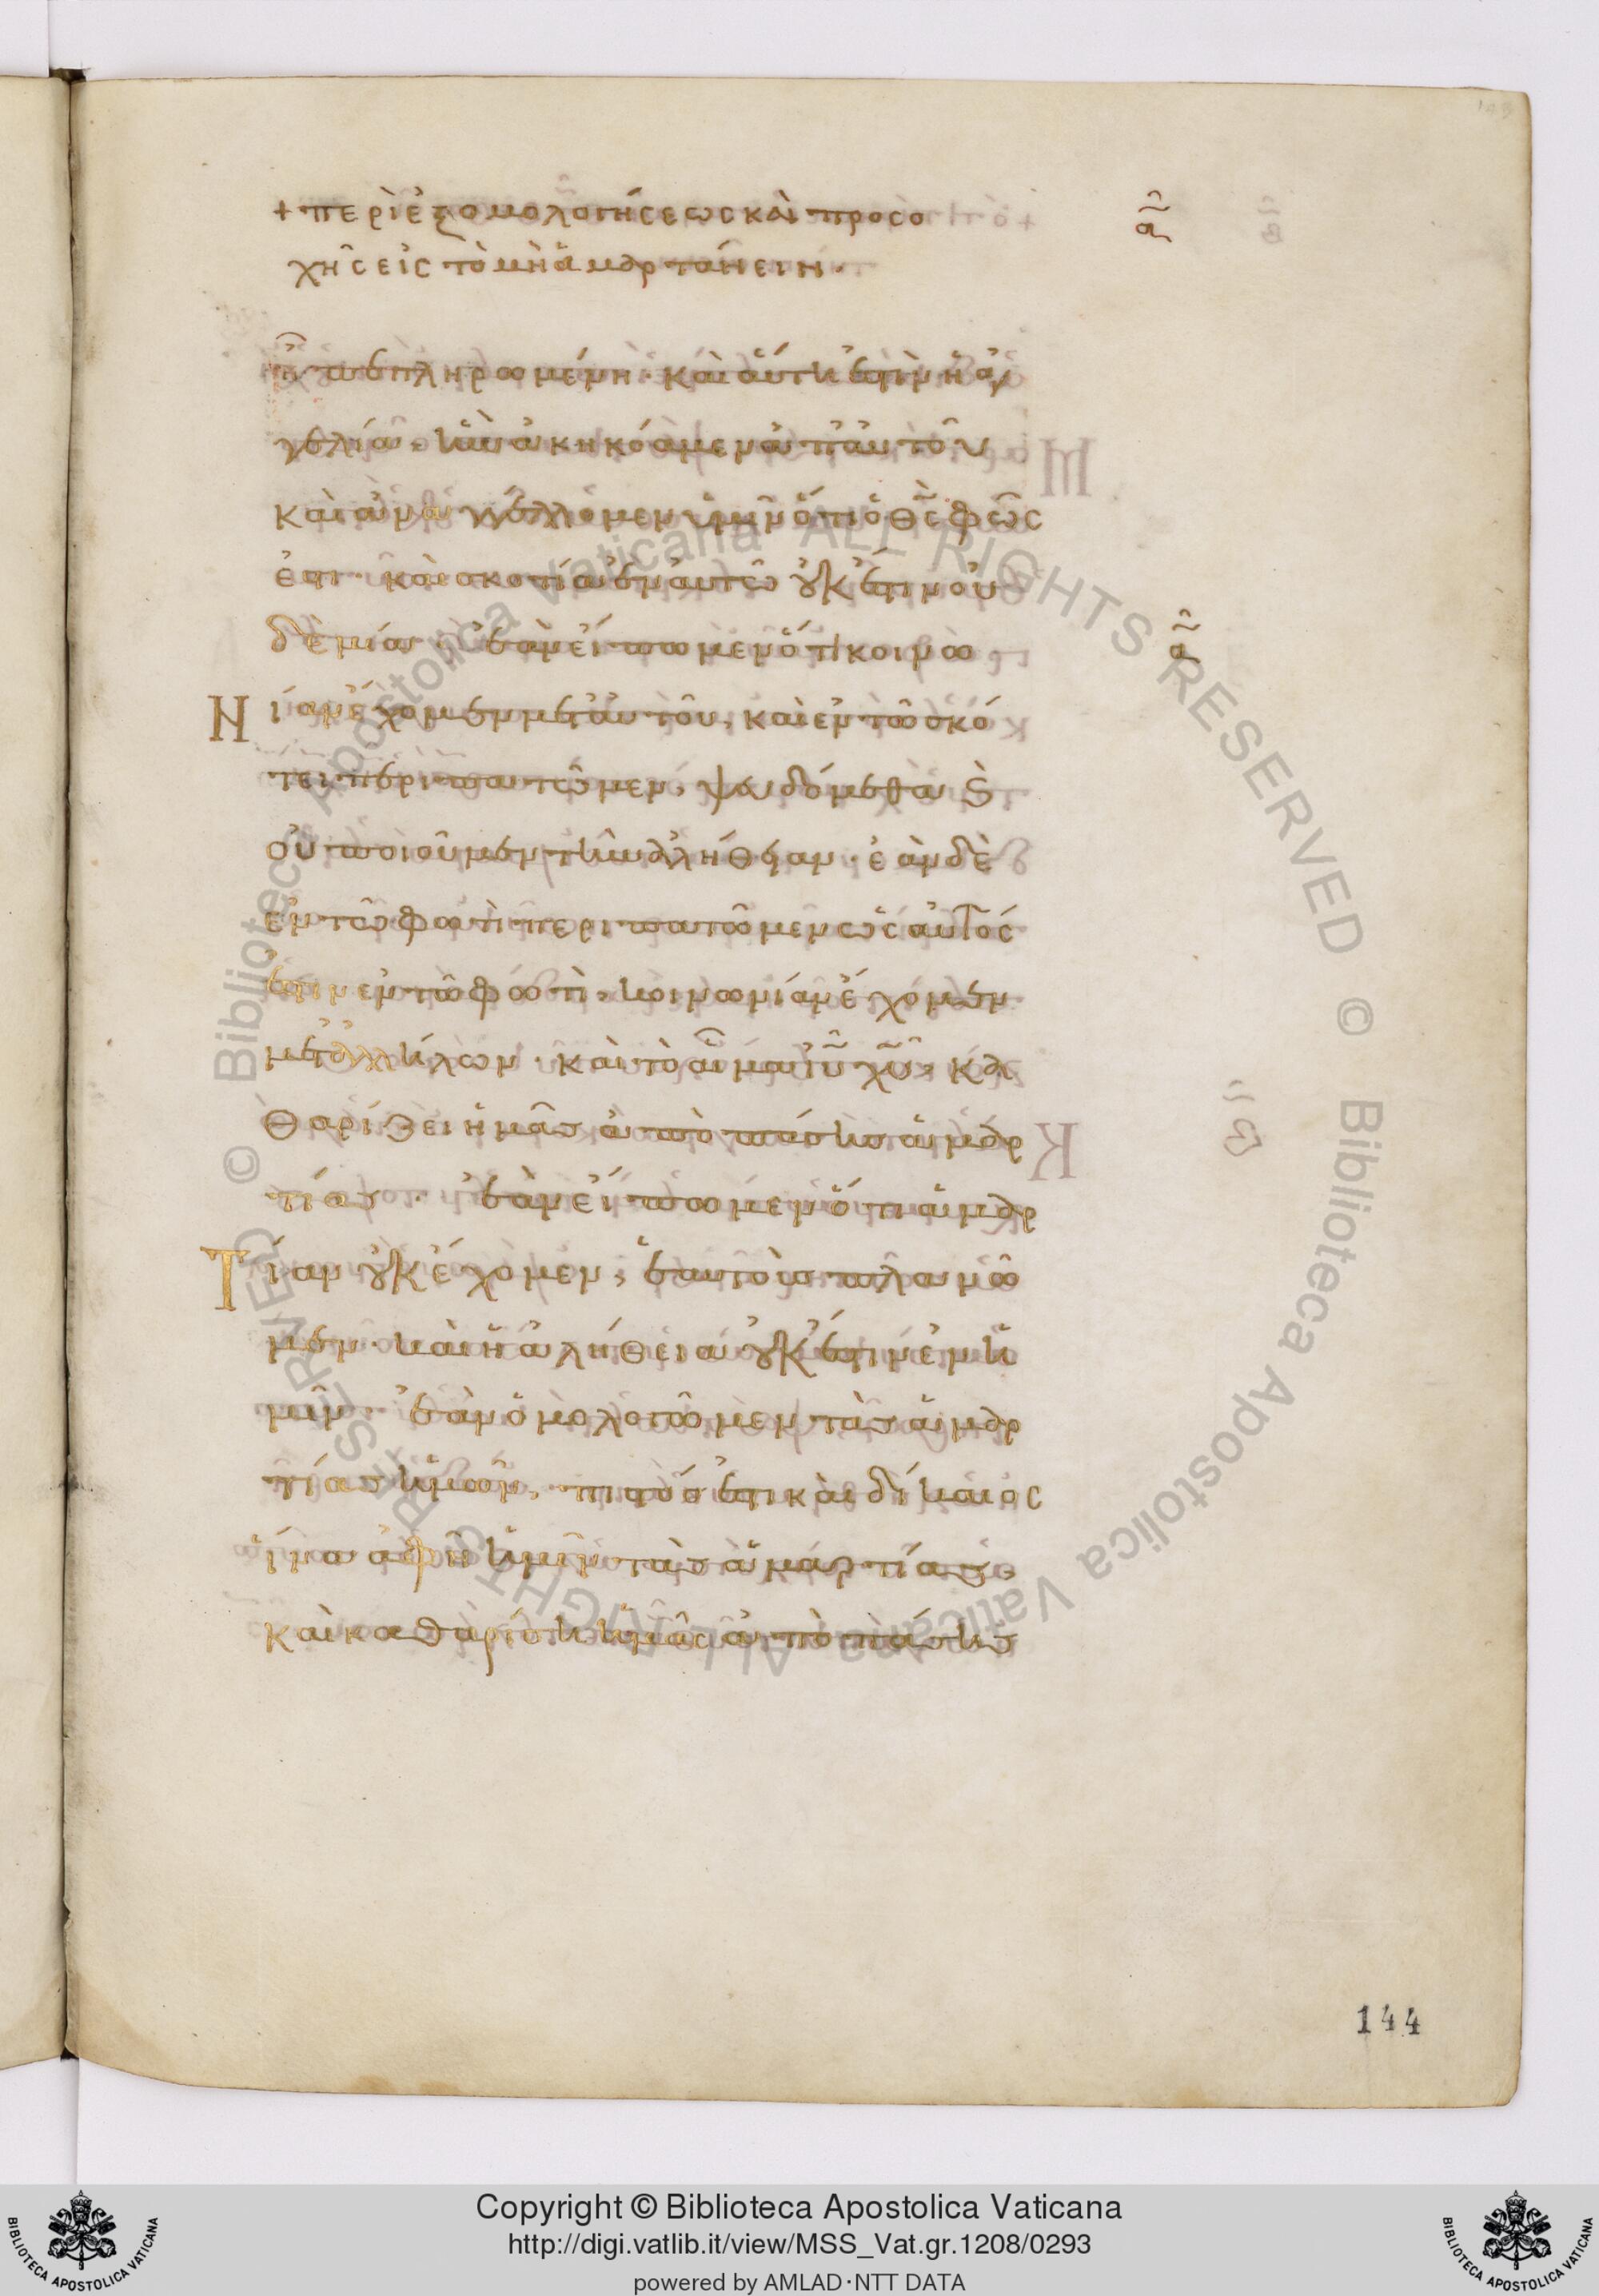 + περὶ ἐξομολογήσεως καὶ προσο
χῆς εἰς τὸ μὴ ἁμαρτάνειν·
ἦ πεπληρωμένη· καὶ αὕτη ἐστὶν ἡ ἀγ
γελία, ἣν ἀκηκόαμεν ἀπ' αὐτοῦ
καὶ ἀναγγέλλομεν ὑμῖν ὅτι ὁ θς φῶς
ἐστι· καὶ σκοτία ἐν αὐτῷ οὐκ ἔστιν οὐ
δεμία· ἐὰν εἴπωμεν ὅτι κοινω
νίαν ἔχομεν μετ' αὐτοῦ, καὶ ἐν τῷ σκό
τει περιπατῶμεν, ψευδόμεθα καὶ
οὐ ποιοῦμεν τὴν ἀλήθειαν· ἐὰν δὲ
ἐν τῷ φωτὶ περιπατῶμεν ὡς αὐτός
ἐστιν ἐν τῷ φωτὶ, κοινωνίαν ἔχομεν
μετ' ἀλλήλων· καὶ τὸ αἷμα ιυ χυ, κα
θαρίζει ἡμᾶς ἀπὸ πάσης ἁμαρ
τίας· ἐὰν εἴπωμεν ὅτι ἁμαρ
τίαν οὐκ ἔχομεν, ἑαυτοὺς πλανῶ
μεν· καὶ ἡ ἀλήθεια οὐκ ἔστιν ἐν ἡ
μῖν· ἐὰν ὁμολογῶμεν τὰς ἁμαρ
τίας ἡμῶν, πιστός ἐστι καὶ δίκαιος
ἵνα ἀφῇ ἡμῖν τὰς ἁμαρτίας,
καὶ καθαρίσῃ ἡμᾶς ἀπὸ πάσης
144
Copyright © Biblioteca Apostolica Vaticana
http://digi.vatlib.it/view/MSS_Vat.gr.1208/0293
powered by AMLAD·NTT DATA
BIBLIOTECA APOSTOLICA VATICANA
BIBLIOTECA APOSTOLICA VATICANA
© Biblioteca Apostolica Vaticana ALL RIGHTS RESERVED © Biblioteca Apostolica Vaticana ALL RIGHTS RESERVED